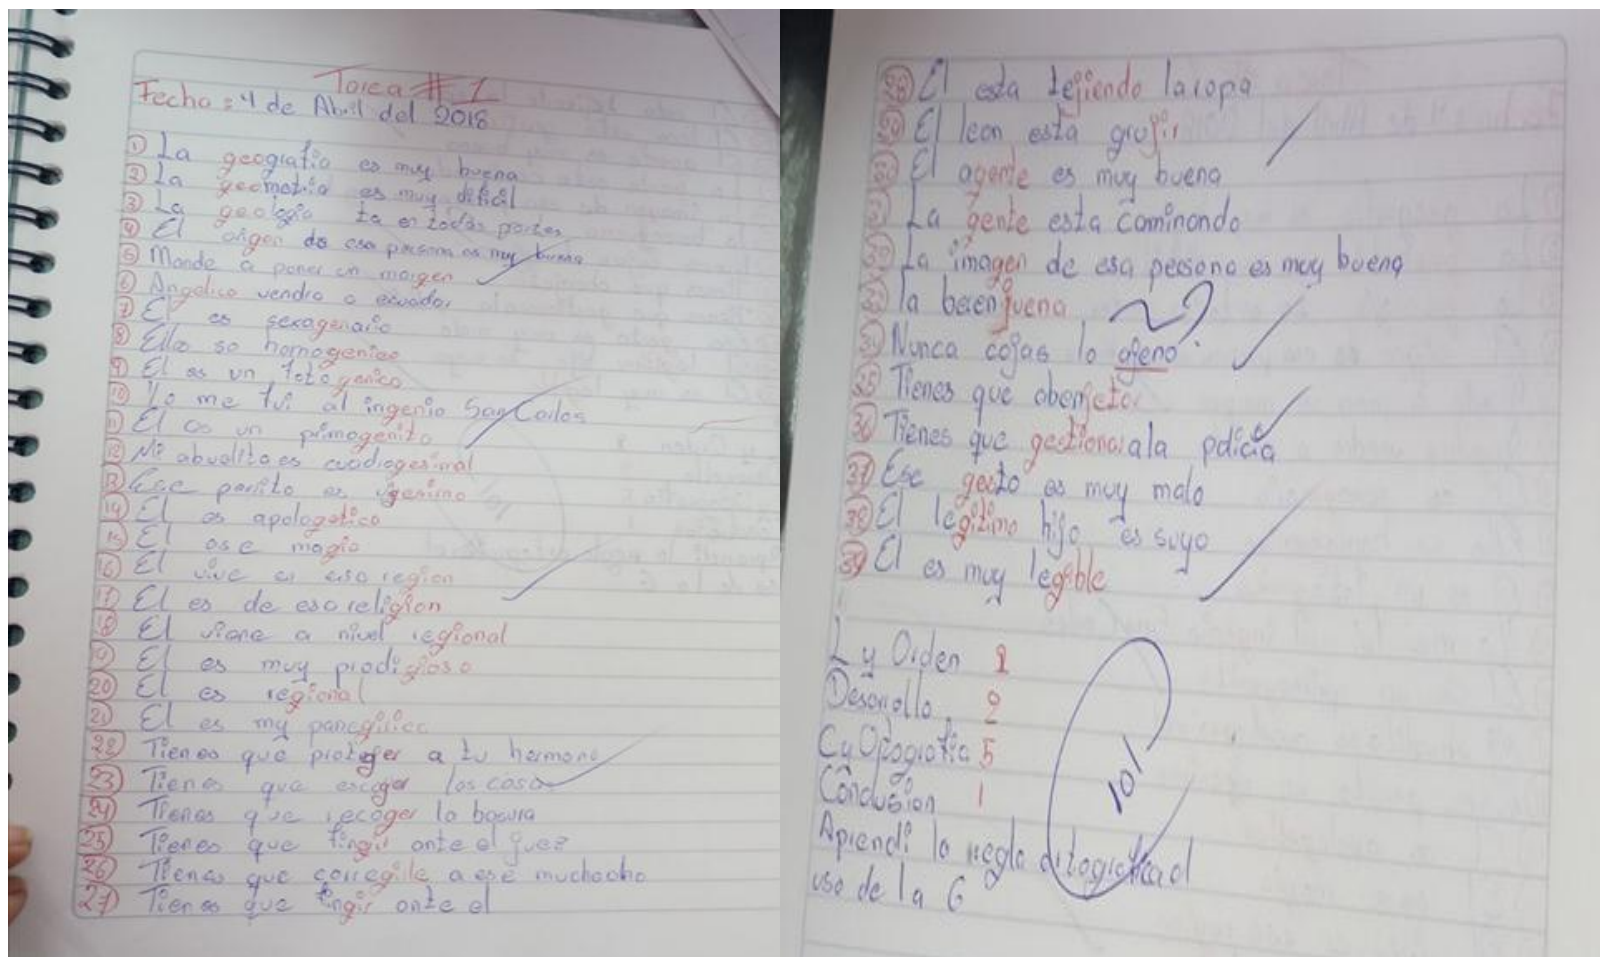 Tarea # 1
Fecha: 4 de Abril del 2018
① La geografia es muy buena
② La geometria es muy dificil
③ La geologia ta en todas partes
④ El origen de esa persona es muy buena
⑤ Mande a poner un margen
⑥ Angelica vendra a ecuador
⑦ El es sexagenario
⑧ Ellos so homogenico
⑨ El es un fotogenico
⑩ Yo me fui al ingenio San Carlos
⑪ El es un primogenito
⑫ Mi abuelito es cuadragesimal
⑬ Ese perrito es
⑭ El es apologetico
⑮ El ase magia
16 El vive en esa region
17 El es de esa religion
18 El viene a nivel regional
19 El es muy prodigioso
20 El es regional
21 El es my panegirico
22 Tienes que proteger a tu hermano
23 Tienes que escoger las cosas
24 Tienes que recoger la basura
25 Tienes que fingir ante el juez
26 Tienes que corregirle a ese muchacho
27 Tienes que fingir ante el
28 El esta tejiendo la ropa
29 El leon esta
30 El agente es muy buena
31 La gente esta caminando
32 La imagen de esa persona es muy buena
33 la berenjuena ~?
34 Nunca cojas lo ajeno
35 Tienes que
36 Tienes que gestionar ala policia
37 Ese gesto es muy malo
38 El legitimo hijo es suyo
39 El es muy legible
L y Orden 2
Desarrollo 2
C y Ortografia 5
Conclusion 1
10/
Aprendi la regla ortografica del
uso de la G